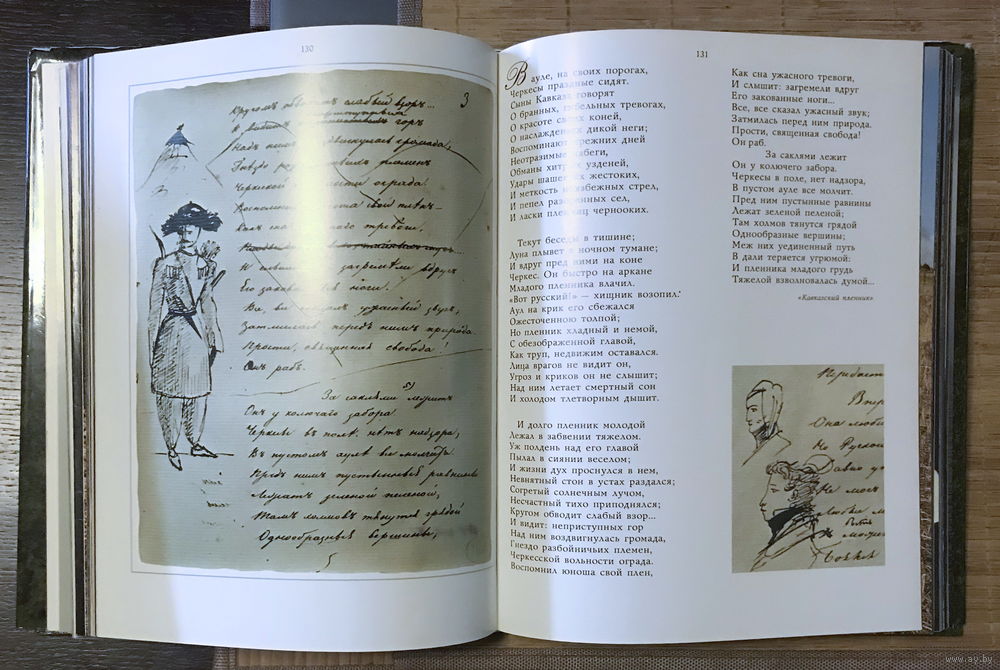 130
3
Кругомъ обводитъ слабый взоръ...
И видитъ
горъ
Надъ нимъ воздвигнулась громада,
Гнѣздо разбойничьихъ племенъ
Черкеской вольности ограда.
Воспомнилъ юноша свой плѣнъ...
Какъ сна ужаснаго тревоги.
И слышитъ загремѣли вдругъ
Его закованныя ноги.
Все, все сказалъ ужасный звукъ,
Затмилась передъ нимъ природа.
Прости, священная свобода!
Онъ рабъ.
За саклями лежитъ
Онъ у колючаго забора
Черкесы въ полѣ, нѣтъ надзора,
Въ пустомъ аулѣ все молчитъ
Предъ нимъ пустынныя равнины
Лежатъ зеленой пеленой,
Тамъ холмовъ тянутся грядой
Однообразныя вершины,
131
В ауле, на своих порогах,
Черкесы праздные сидят.
Сыны Кавказа говорят
О бранных, гибельных тревогах,
О красоте своих коней,
О наслажденьях дикой неги;
Воспоминают прежних дней
Неотразимые набеги,
Обманы хитрых узденей,
Удары шашек их жестоких,
И меткость неизбежных стрел,
И пепел разоренных сел,
И ласки пленниц чернооких.
Текут беседы в тишине;
Луна плывет в ночном тумане;
И вдруг пред ними на коне
Черкес. Он быстро на аркане
Младого пленника влачил.
«Вот русский!» — хищник возопил.
Аул на крик его сбежался
Ожесточенною толпой;
Но пленник хладный и немой,
С обезображенной главой,
Как труп, недвижим оставался.
Лица врагов не видит он,
Угроз и криков он не слышит;
Над ним летает смертный сон
И холодом тлетворным дышит.
И долго пленник молодой
Лежал в забвении тяжелом.
Уж полдень над его главой
Пылал в сиянии веселом;
И жизни дух проснулся в нем,
Невнятный стон в устах раздался;
Согретый солнечным лучом,
Несчастный тихо приподнялся;
Кругом обводит слабый взор...
И видит: неприступных гор
Над ним воздвигнулась громада,
Гнездо разбойничьих племен,
Черкесской вольности ограда.
Воспомнил юноша свой плен,
Как сна ужасного тревоги,
И слышит: загремели вдруг
Его закованные ноги...
Все, все сказал ужасный звук;
Затмилась перед ним природа.
Прости, священная свобода!
Он раб.
За саклями лежит
Он у колючего забора.
Черкесы в поле, нет надзора,
В пустом ауле все молчит.
Пред ним пустынные равнины
Лежат зеленой пеленой;
Там холмов тянутся грядой
Однообразные вершины;
Меж них уединенный путь
В дали теряется угрюмой:
И пленника младого грудь
Тяжелой взволновалась думой...
«Кавказский пленник»
Она люби
Но Русской
Давно
Не мог
www.ay.by